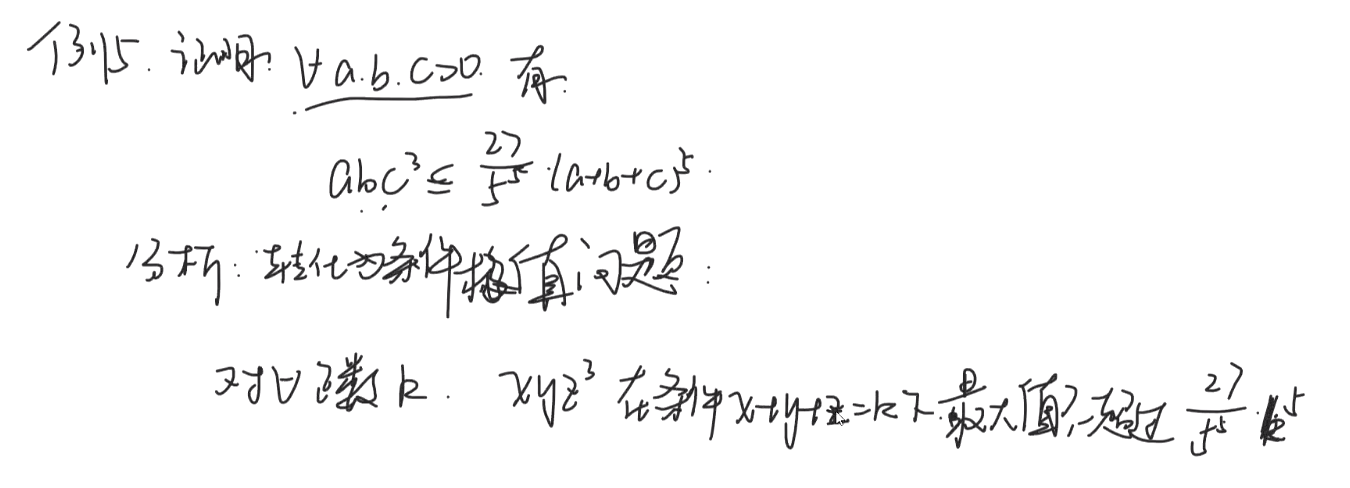 例15. 证明: ∀ a.b.c>0. 有.
abc³ ≤ 27/5⁵ · (a+b+c)⁵.
分析: 转化为条件极值问题:
对∀正数k. xyz³ 在条件x+y+z=k下最大值不超过 27/5⁵ · k⁵